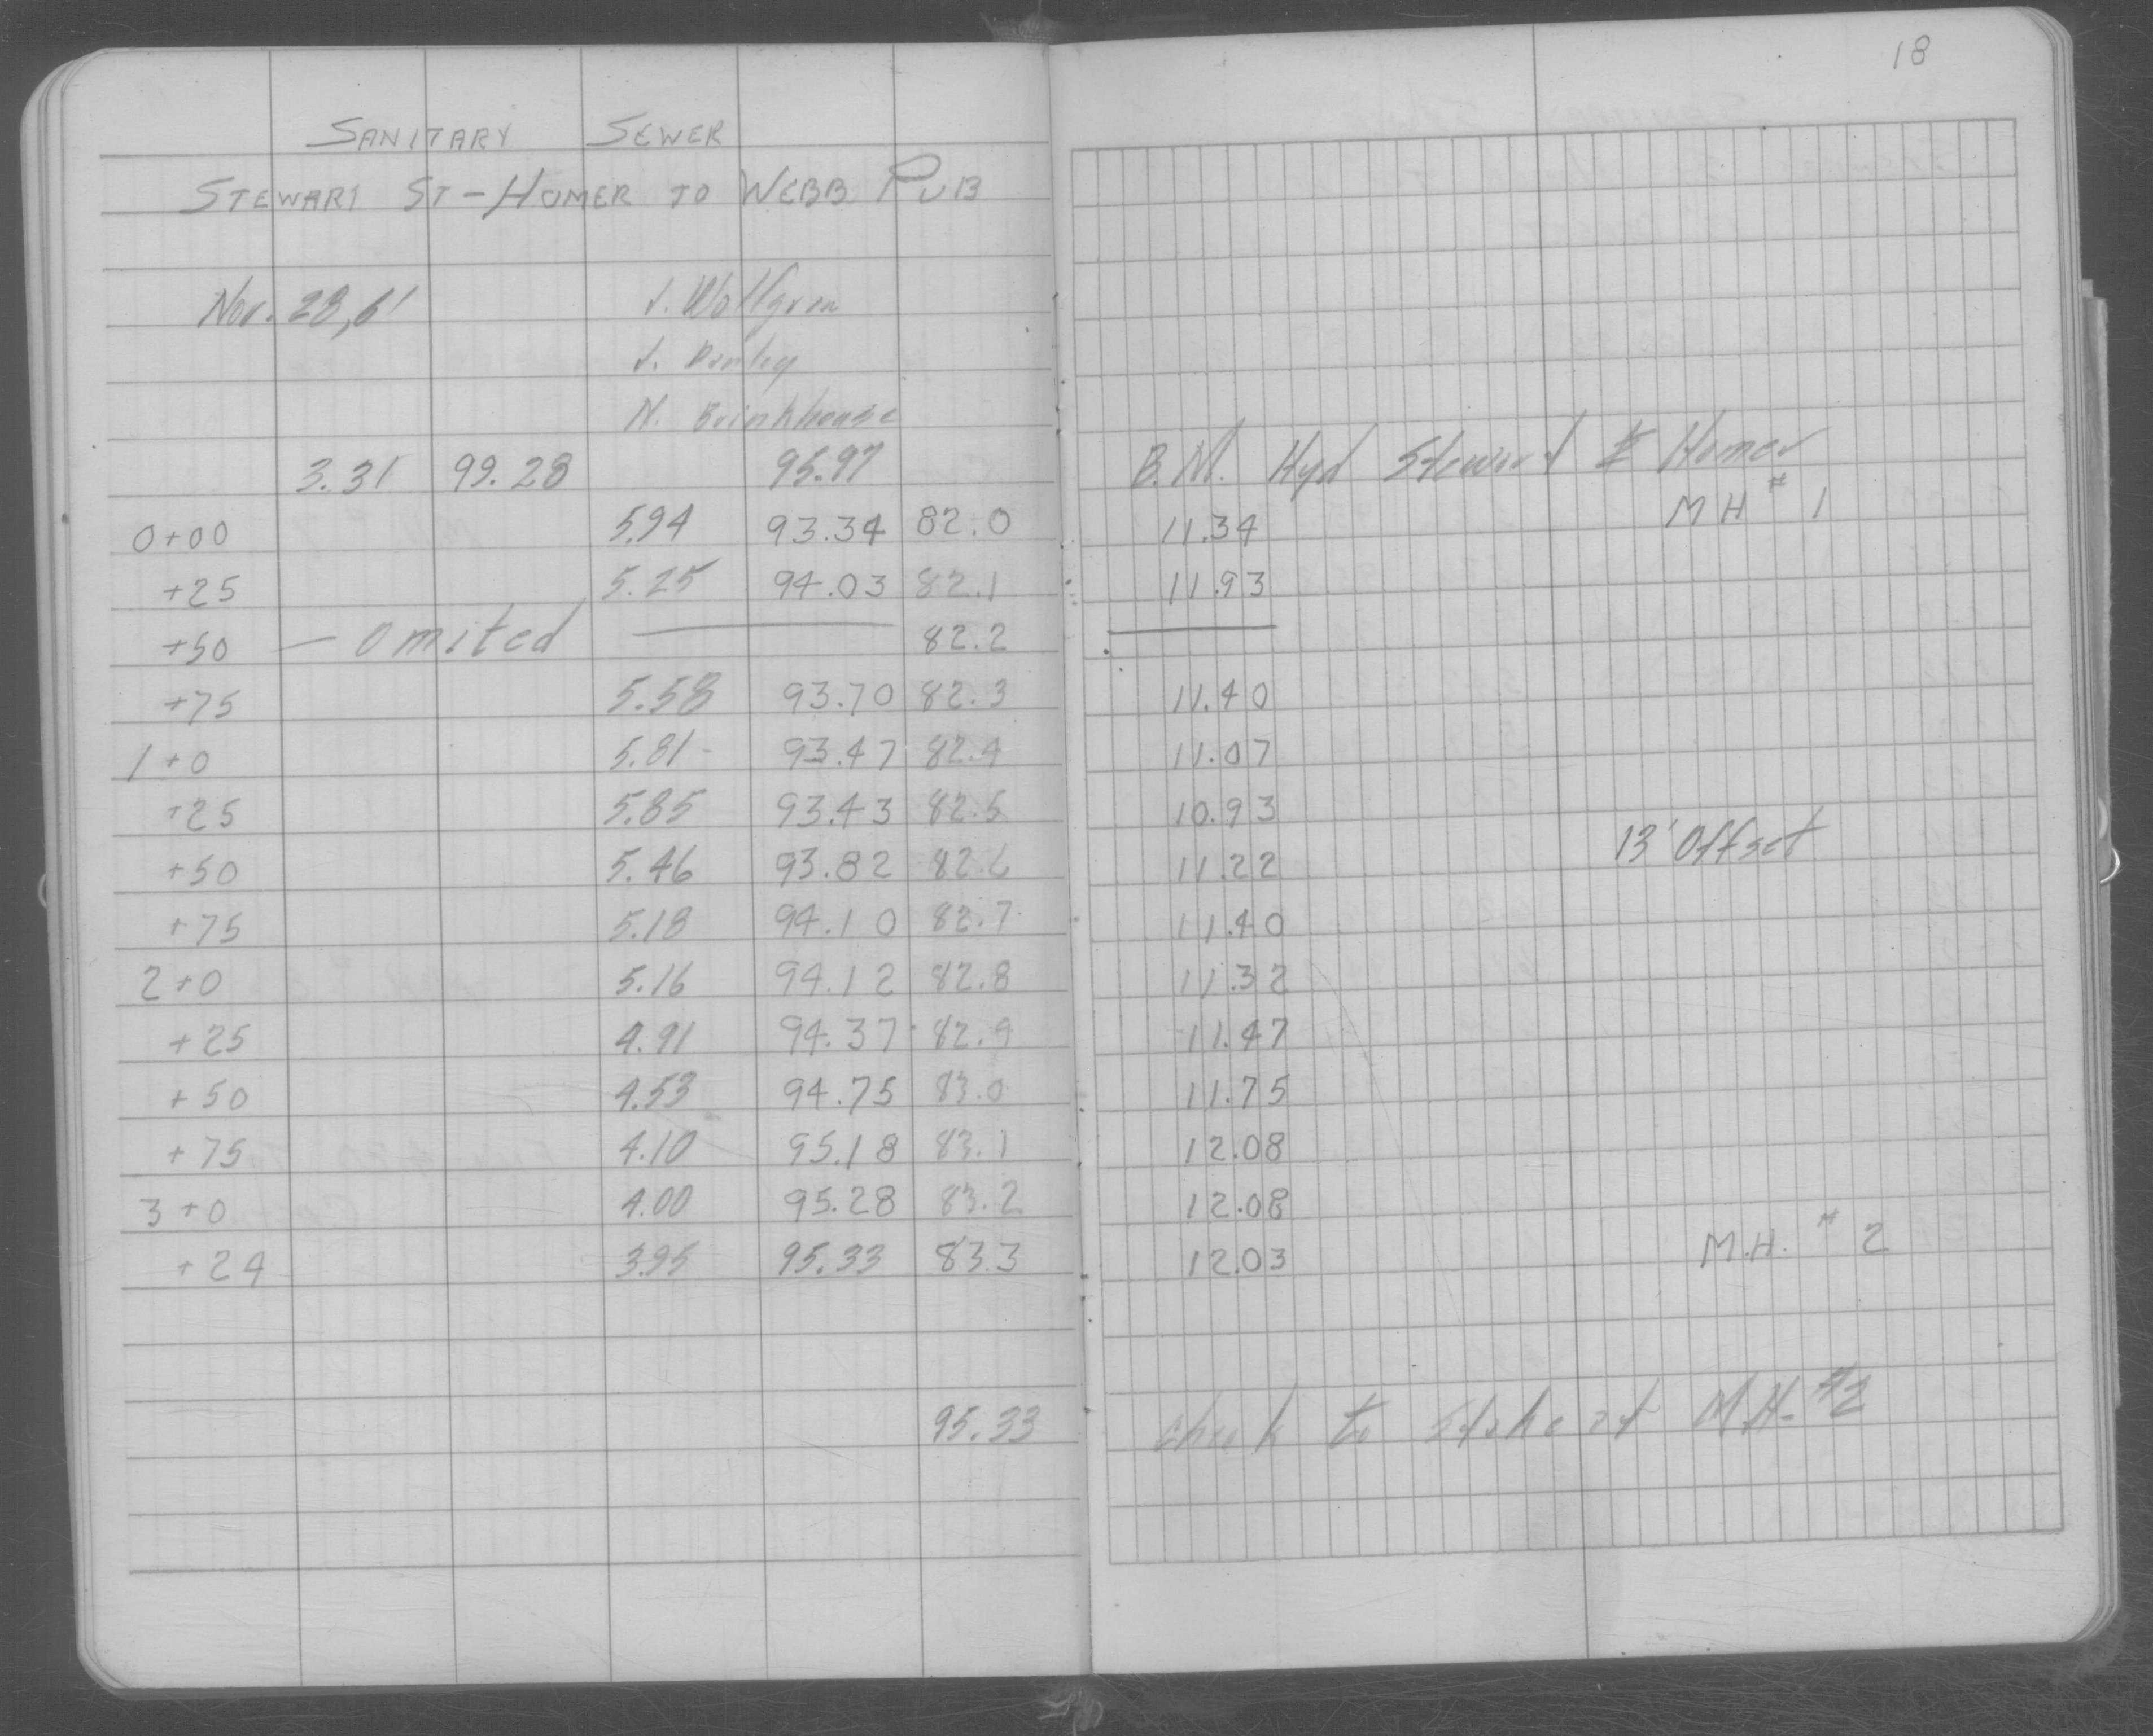 18
SANITARY SEWER
STEWART ST - HOMER TO WEBB PUB
Nov. 28, 61 J. Wolfgram
J.
N. Brinkhouse
3.31 99.28 95.97 B.M. Hyd Stewart & Homer
0+00 5.94 93.34 82.0 11.34 MH # 1
+25 5.25 94.03 82.1 11.93
+50 — Omited 82.2
+75 5.58 93.70 82.3 11.40
1+0 5.81 93.47 82.4 11.07
+25 5.85 93.43 82.5 10.93
+50 5.46 93.82 82.6 11.22 13' Offset
+75 5.18 94.10 82.7 11.40
2+0 5.16 94.12 82.8 11.32
+25 4.91 94.37 82.9 11.47
+50 4.53 94.75 83.0 11.75
+75 4.10 95.18 83.1 12.08
3+0 4.00 95.28 83.2 12.08
+24 3.95 95.33 83.3 12.03 M.H. # 2
95.33 check to stake at M.H. #2